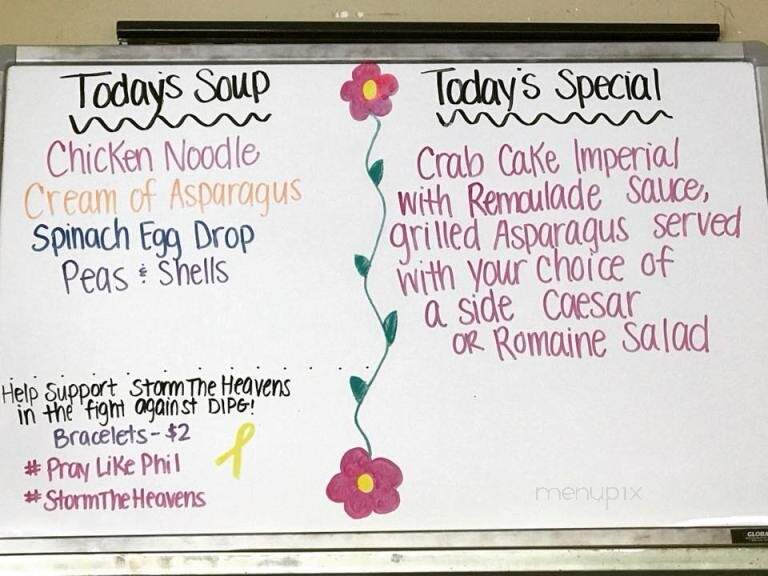 Today's Soup
Chicken Noodle
Cream of Asparagus
Spinach Egg Drop
Peas & Shells
Help Support Storm The Heavens
in the fight against DIPG!
Bracelets - $2
# Pray Like Phil
# StormTheHeavens
Today's Special
Crab Cake Imperial
with Remoulade Sauce,
grilled Asparagus served
with your choice of
a side Caesar
OR Romaine Salad
menupix